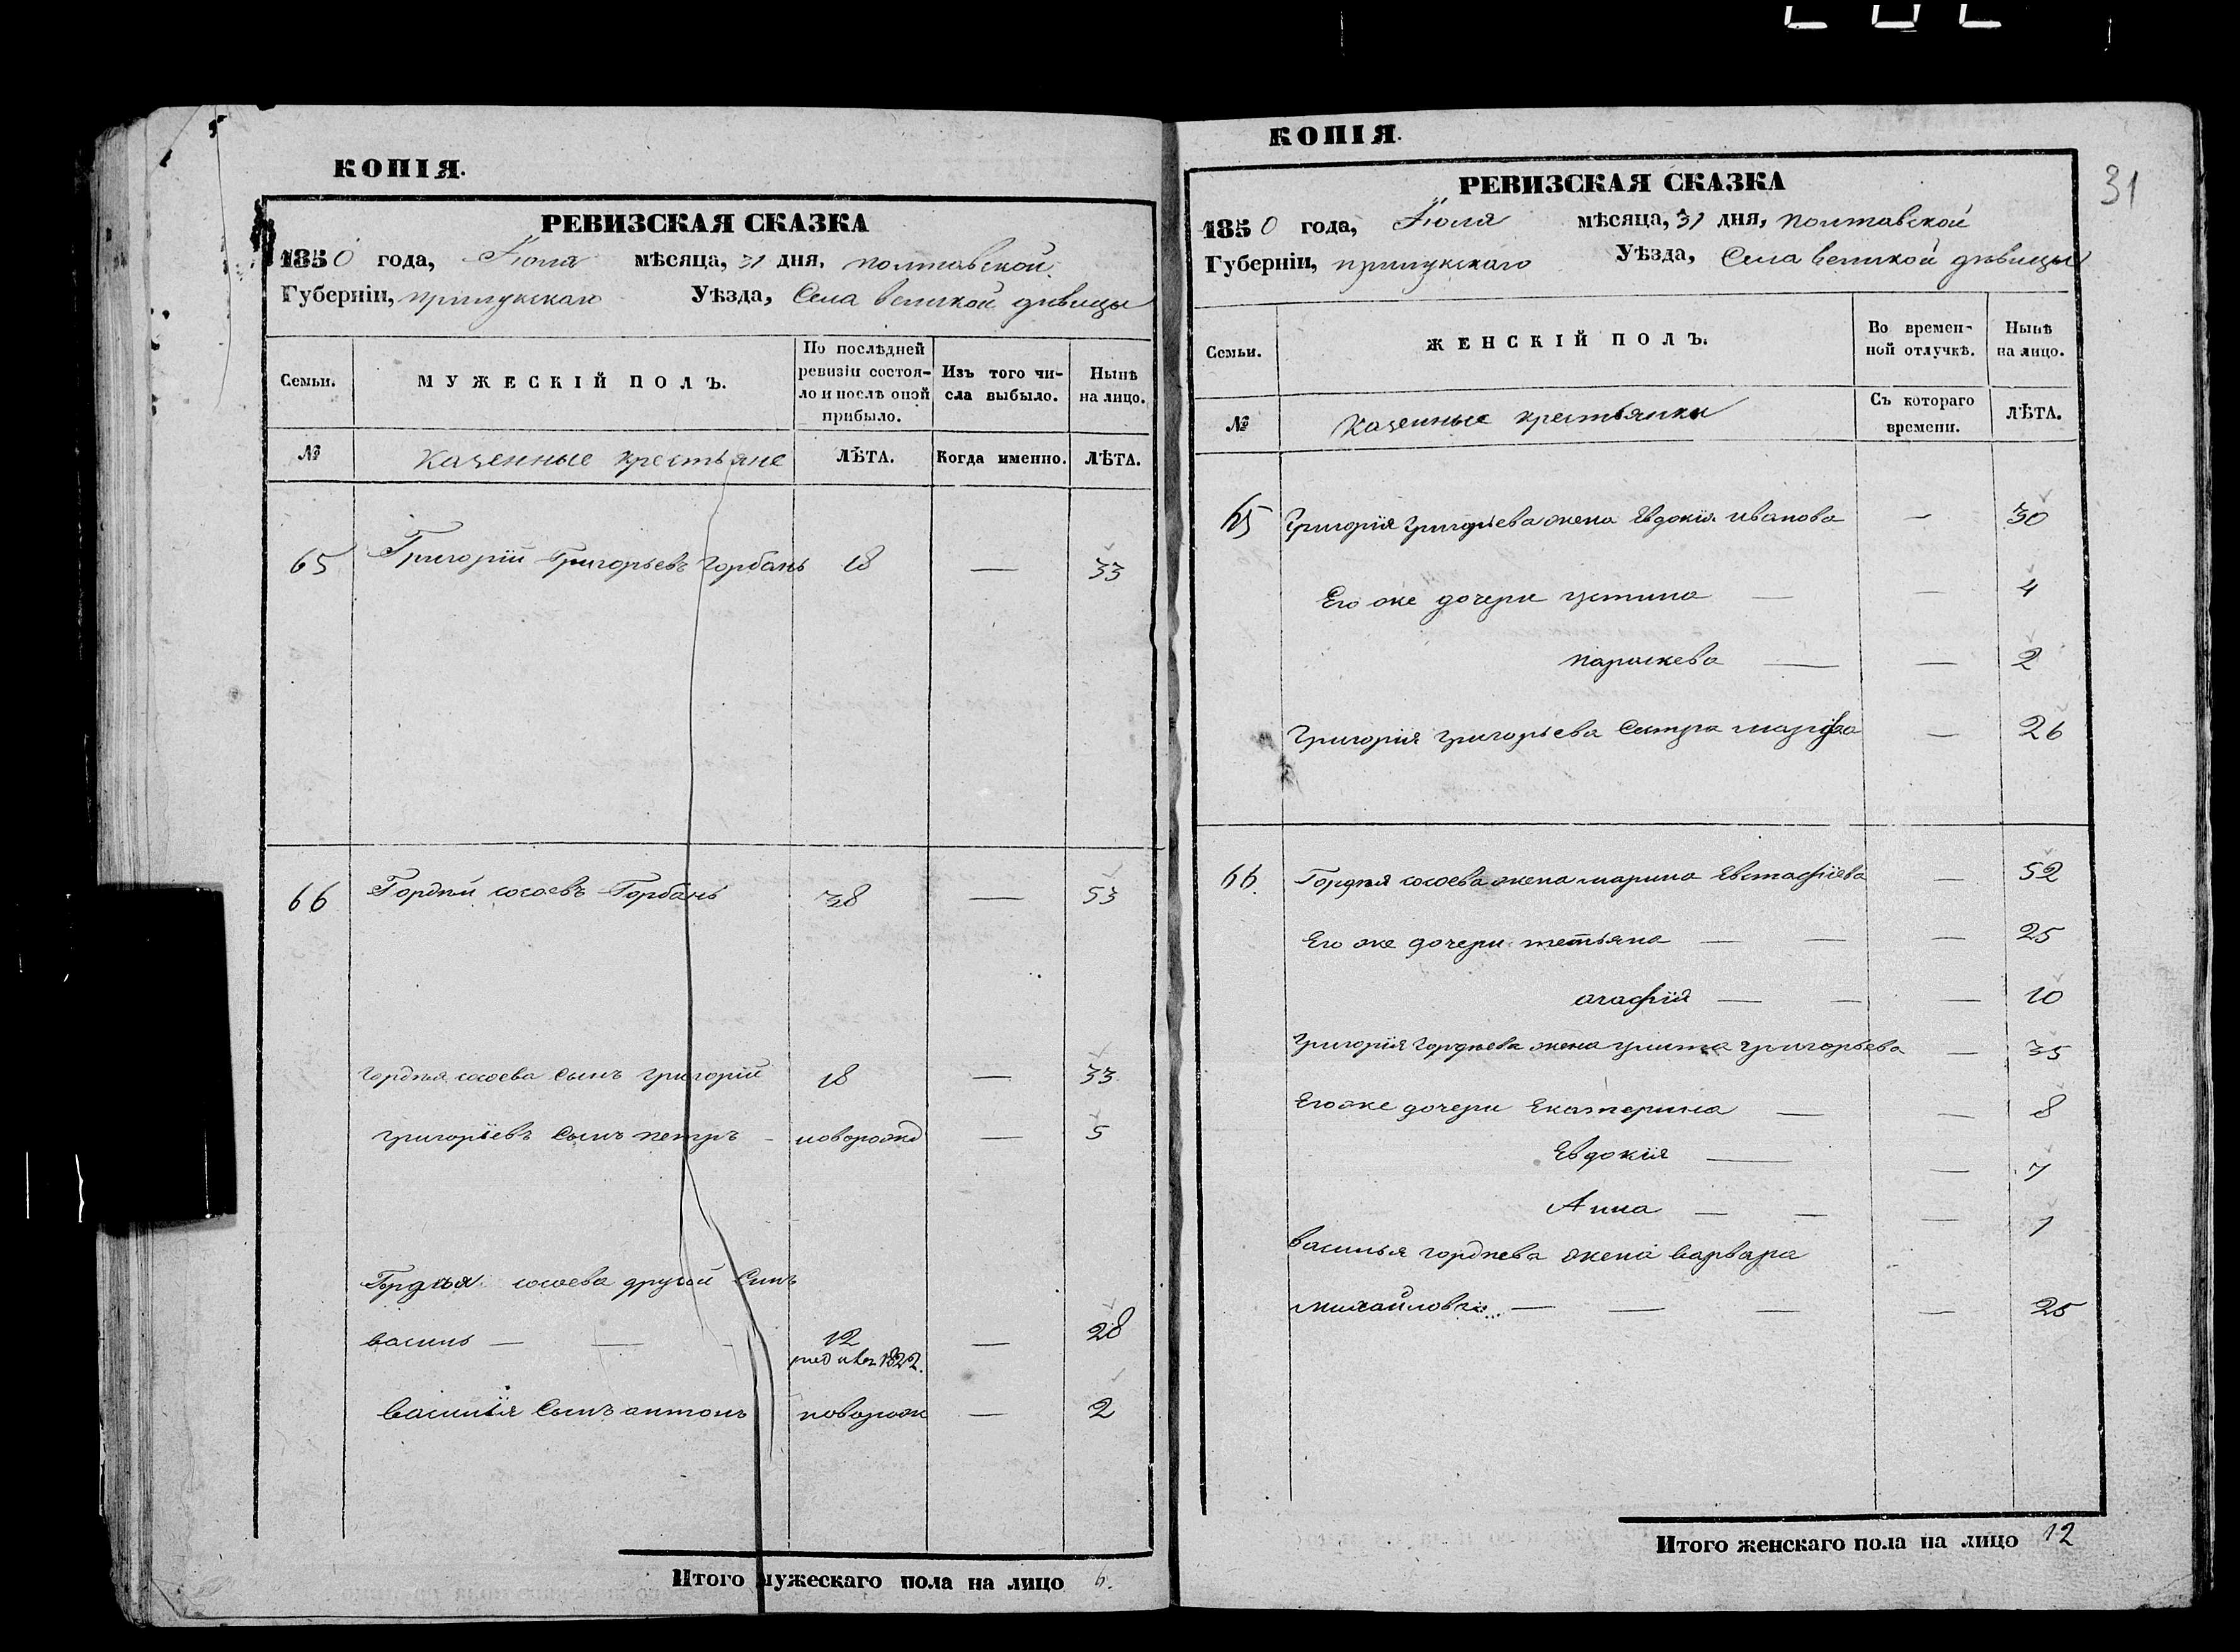 КОПІЯ.
РЕВИЗСКАЯ СКАЗКА
1850 года, Іюля мѣсяца, 31 дня, полтавской
Губерніи, прилукскаго Уѣзда, Села великой дѣвицы
Семьи. МУЖЕСКІЙ ПОЛЪ. По послѣдней ревизіи состояло и послѣ оной прибыло. Изъ того числа выбыло. Нынѣ на лицо.
№ Казенные крестьяне ЛѢТА. Когда именно. ЛѢТА.
65 Григорій Григорьевъ Горбань 18 — 33
66 Гордѣй сосоевъ Горбань 38 — 53
Гордѣя сосоева сынъ григорій 18 — 33
григоріевъ сынъ петръ - новорожд — 5
Гордѣя сосоева другой сынъ
василь — — - 12 — 28
1822.
василія сынъ антонъ новорож — 2
Итого мужескаго пола на лицо 6.
КОПІЯ.
31
РЕВИЗСКАЯ СКАЗКА
1850 года, Іюля мѣсяца, 31 дня, полтавской
Губерніи, прилукскаго Уѣзда, Села великой дѣвицы
Семьи. ЖЕНСКІЙ ПОЛЪ. Во временной отлучкѣ. Нынѣ на лицо.
№ Казенные крестьянки Съ котораго времени. ЛѢТА.
65 Григорія григорьева жена Евдокія иванова — 30
Его же дочери устина — — 4
параскева — — 2
Григорія григорьева сестра марфа — 26
66. Гордѣя сосоева жена марина Евстафіева — 52
Его же дочери тетьяна — — — 25
агафія — — — 10
Григорія гордѣева жена улита григорьева — 35
Его же дочери Екатерина — — 8
Евдокія — — 7
Анна — — — 1
василья гордѣева жена варвара
михайлова — — — — 25
Итого женскаго пола на лицо 12